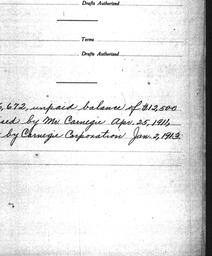 Drafts Authorized
Terms
Drafts Authorized
5,672, unpaid balance of $12,500
ised by Mr. Carnegie Apr. 25, 1911,
by Carnegie Corporation Jan. 2, 1913.